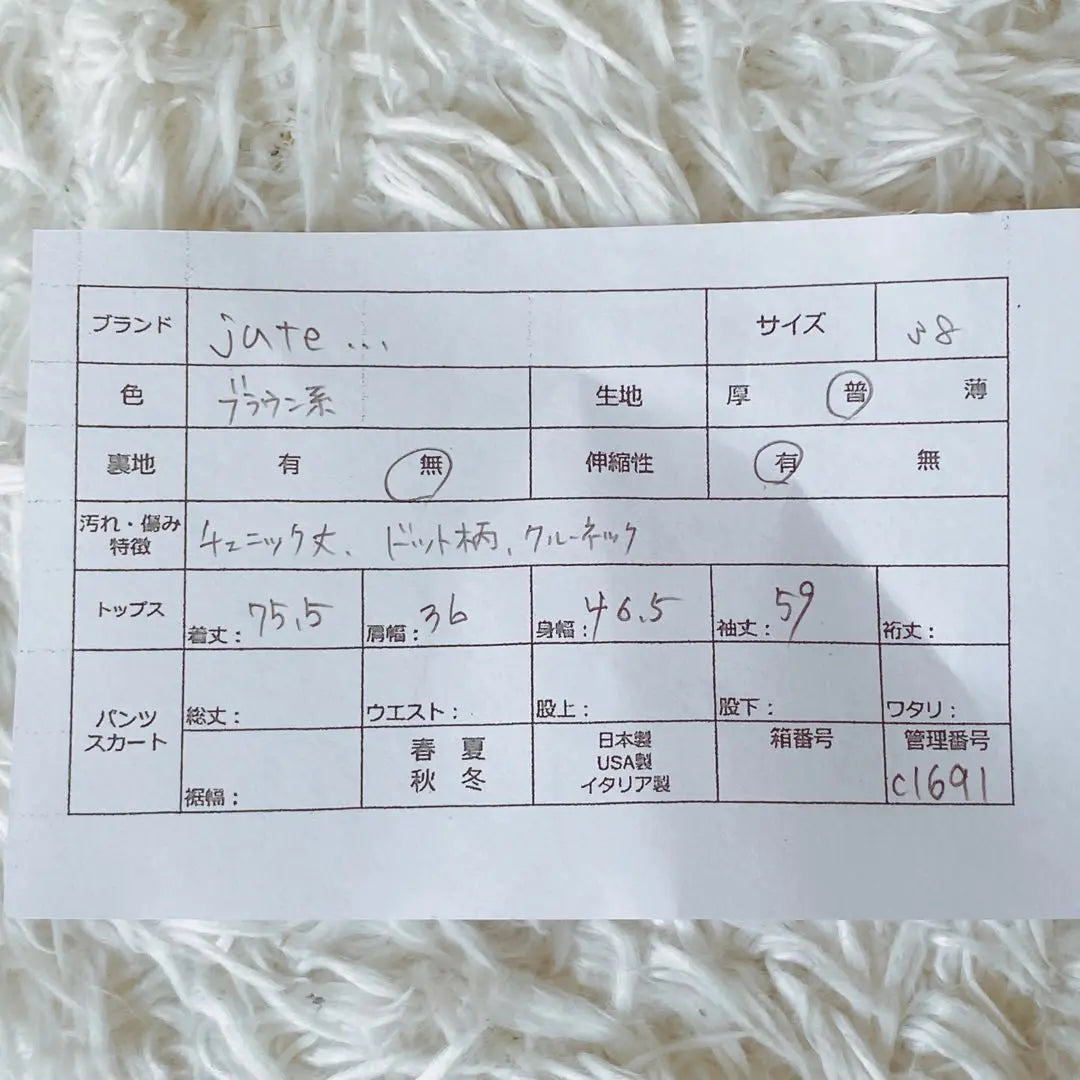 ブランド jute... サイズ 38
色 ブラウン系 生地 厚 普 薄
裏地 有 無 伸縮性 有 無
汚れ・傷み
特徴 チュニック丈、ドット柄、クルーネック
トップス 着丈: 75.5 肩幅: 36 身幅: 46.5 袖丈: 59 裄丈:
パンツ
スカート
総丈: ウエスト: 股上: 股下: ワタリ:
裾幅:
春 夏
秋 冬
日本製
USA製
イタリア製
箱番号
管理番号
c1691